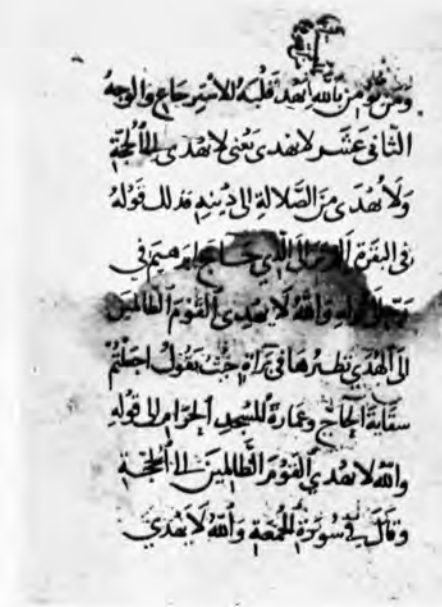 ومن يومن بالله يهد قلبه للاسترجاع والوجه
الثاني عشر لا يهدي يعني لا يهدي الى الحجة
ولا يهدي من الضلالة الى دينه فذلك قوله
في البقرة الم تر الى الذي حاج ابرهيم في
ربه الى قوله والله لا يهدي القوم الظالمين
الى الهدى نظيرها في براة حيث يقول اجعلتم
سقاية الحاج وعمارة المسجد الحرام الى قوله
والله لا يهدي القوم الظالمين الى الحجة
وقال في سورة الجمعة والله لا يهدي